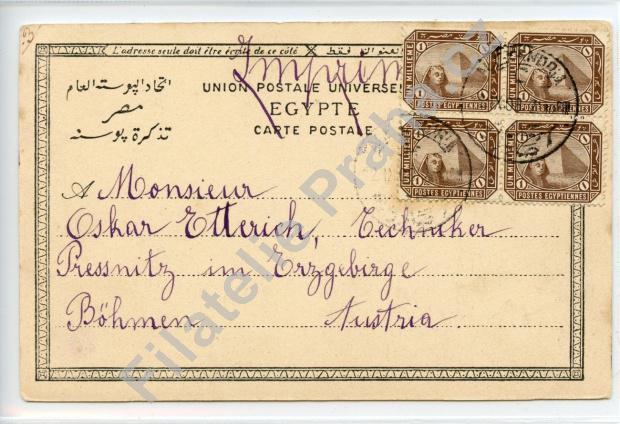 L'adresse seule doit être écrite de ce côté
Imprimé
UNION POSTALE UNIVERSE
EGYPTE
CARTE POSTALE
اتحاد البوسته العام
مصر
تذكرة بوسته
A Monsieur
Oskar Etterich, Techniker
Pressnitz im Erzgebirge
Böhmen Austria.
UN MILLIEME
1 1
POSTES EGYPTIENNES
UN MILLIEME
1 1
POSTES EGYPTIENNES
UN MILLIEME
1 1
POSTES EGYPTIENNES
UN MILLIEME
1 1
POSTES EGYPTIENNES
Filatelie Praha